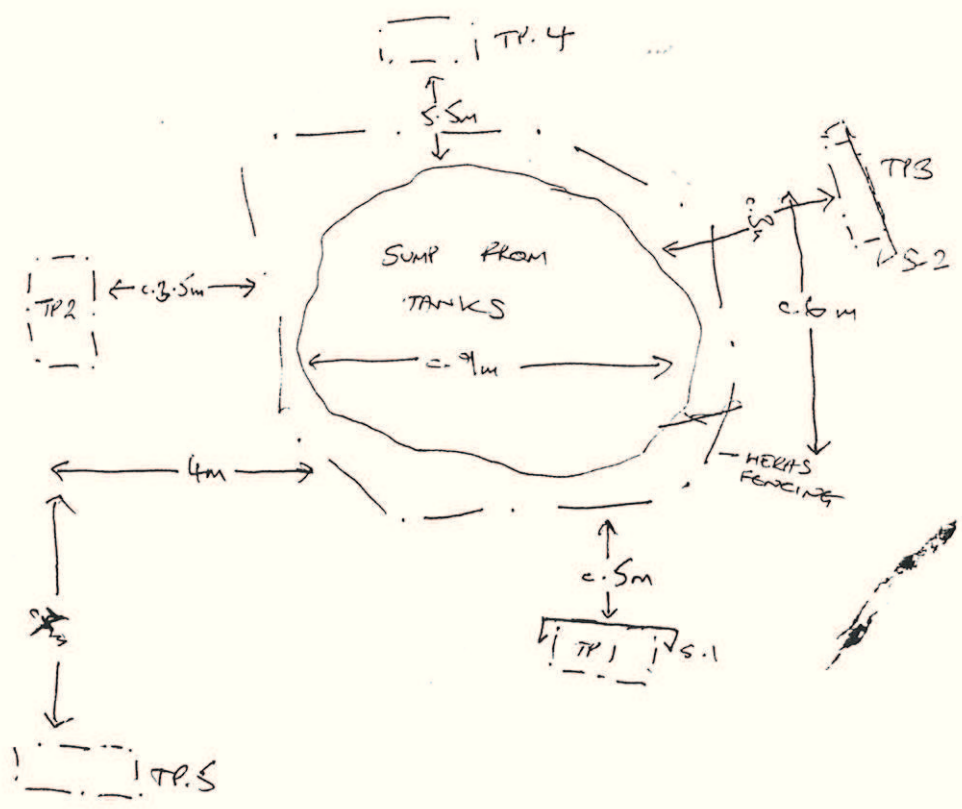 TP.4
5.5m
TP3
S.2
SUMP FROM
TANKS
TP2
c.3.5m
c.6m
c.9m
4m
HERAS
FENCING
c.5m
TP1
S.1
TP.5